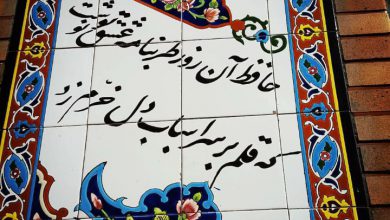 حافظ آن روز طربنامه عشق تو نوشت
که قلم بر سر اسباب دل خرم زد